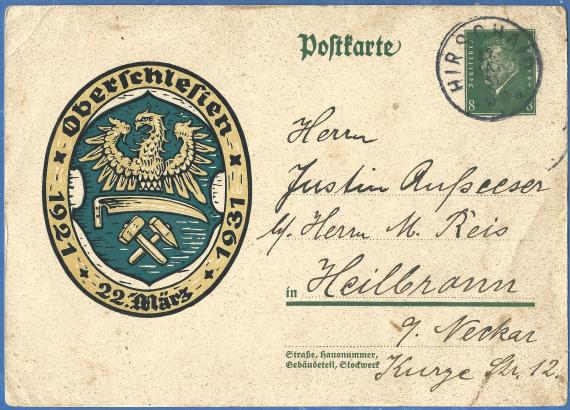 Postkarte
HIRSCH
8
Oberschlesien
1921
1931
22. März
Herrn
Justin Aufseeser
b/. Herrn M. Reis
in Heilbronn
a/. Neckar
Straße, Hausnummer,
Gebäudeteil, Stockwerk
Kurze Str. 12.